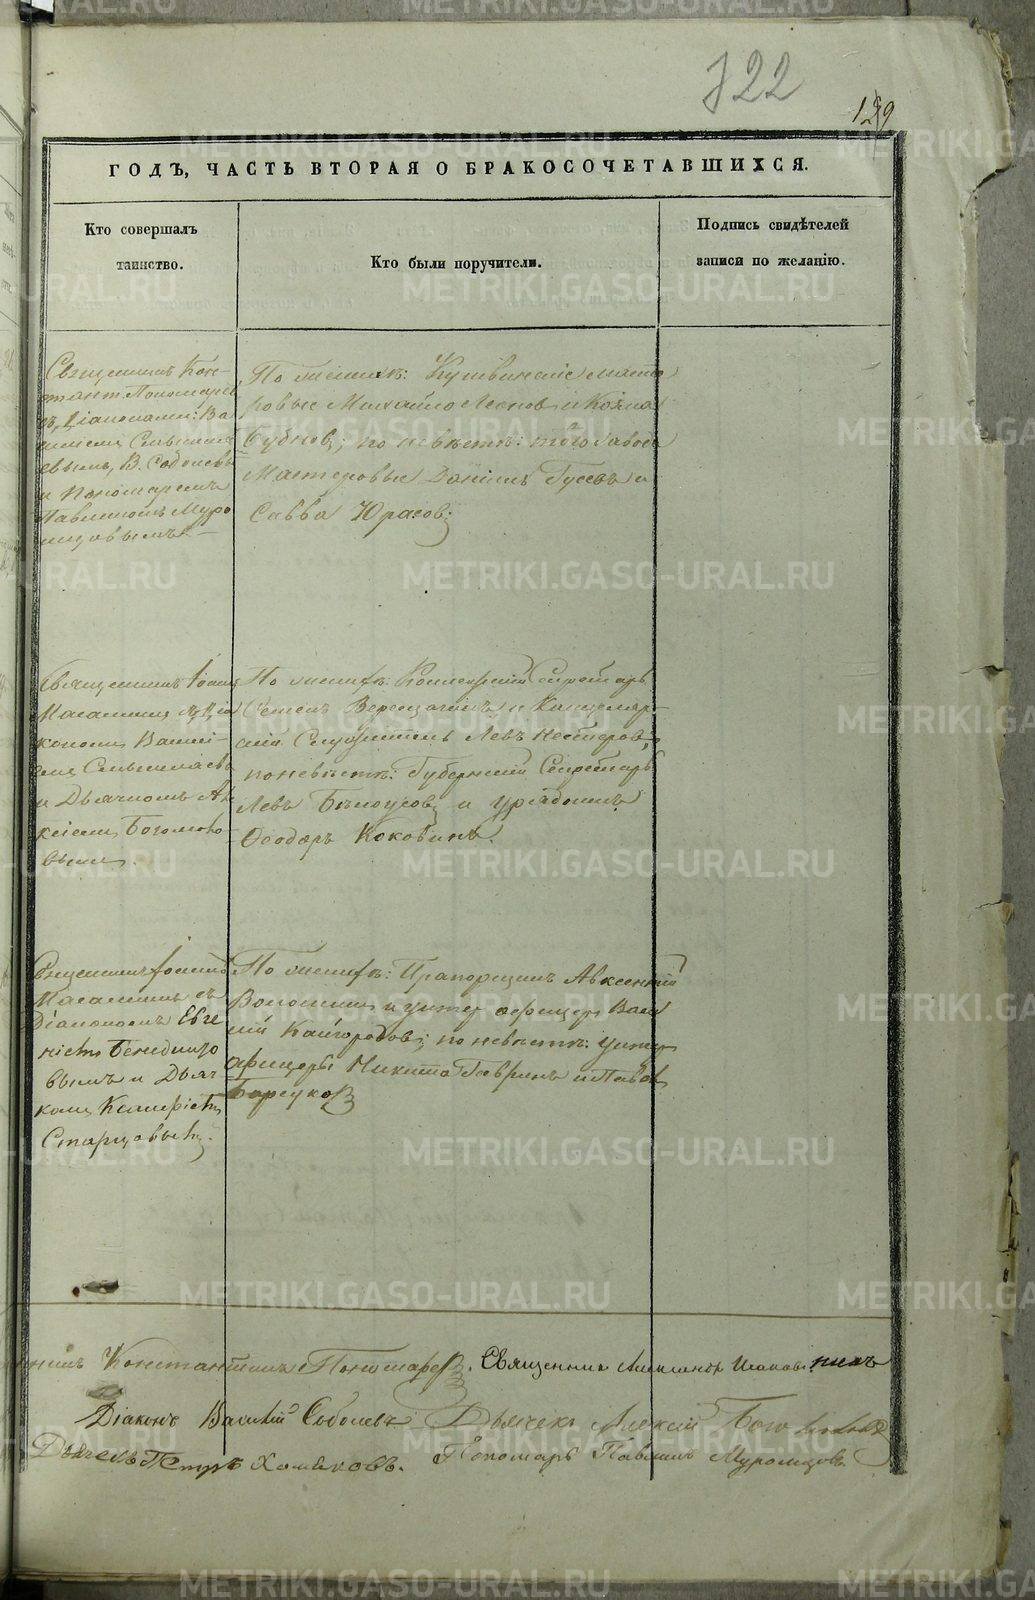 722
129
ГОДЪ, ЧАСТЬ ВТОРАЯ О БРАКОСОЧЕТАВШИХСЯ.
Кто совершалъ
таинство.
Кто были поручители.
Подпись свидѣтелей
записи по желанію.
Священникъ Кон-
стант. Пономаревъ
съ Діаконами: Ва
силіемъ
евымъ, В. Соболевы
и Пономаремъ
Павлиномъ Муро
мцовымъ
По женихѣ: Кушвинскіе масте
ровые Михайло Леонов и Козма
Бубнов; по невѣстѣ: того завода
Мастеровые Даніилъ Гусевъ и
Савва Юрасов
Священникъ Іоаннъ
съ Діа
кономъ Васи-
ліемъ
и Дьячкомъ Але
ксіемъ Боголюбо
вымъ.
По женихѣ: Коллежскій Секретарь
Семенъ Верещагинъ и Канцеляр-
скій Служитель Левъ Нестеров,
по невѣстѣ: Губернскій Секретарь
Левъ Бѣлоусов и Урядникъ
Ѳеодоръ Коковинъ.
Священникъ Іоаннъ
съ
Діакономъ Евге
ніемъ
вымъ и Дьяч
комъ
Старцовымъ.
По женихѣ: Прапорщикъ Авксентій
Волошинъ и унтер офицеръ Васи
лій Кайгородов; по невѣстѣ: унтер
офицеры Никита Гаврин и Павел
Барсуков
Константинъ Пономарев. Священникъ Александръ
Діаконъ Василій Соболевъ Дьячекъ Алексій Бого
Дьячекъ Петръ Хомяковъ. Пономарь Павлинъ Муромцовъ
METRIKI.GASO-URAL.RU